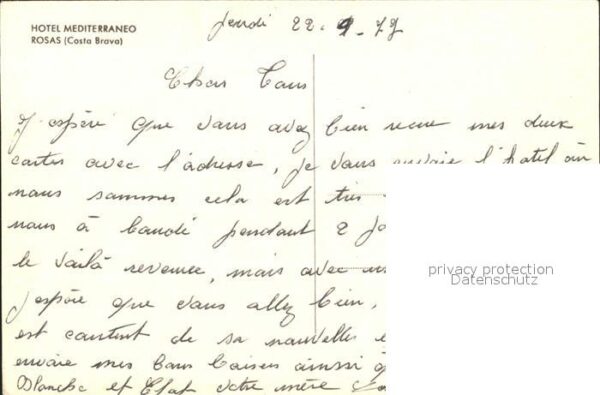 HOTEL MEDITERRANEO
ROSAS (Costa Brava)
Jeudi 22.9.79
Chers Tous
J'espère que vous avez bien recue mes deux
cartes avec l'adresse, je vous envoie l'hotel où
nous sommes cela est très
nous à boudé pendant 2 jo
le voilà revenue, mais avec un
j'espère que vous allez bien,
est content de sa nouvelle
envoie mes bons baisers ainsi q
Blanche et votre mère
privacy protection
Datenschutz